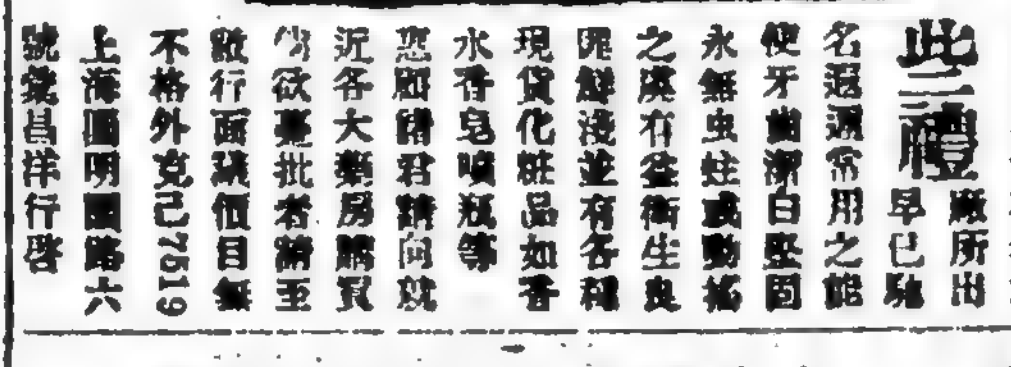 此三禮
廠所出
早已馳
名遐邇常用之能
使牙齒潔白堅固
永無虫蛀或動搖
之廢有益衛生良
非鮮淺並有各種
現貨化粧品如香
水香皂噴瓶等
惠顧諸君請向就
近各大藥房購買
倘欲躉批者請至
敝行面議價目無
不格外克己7519
上海圓明園路六
號彙昌洋行啓